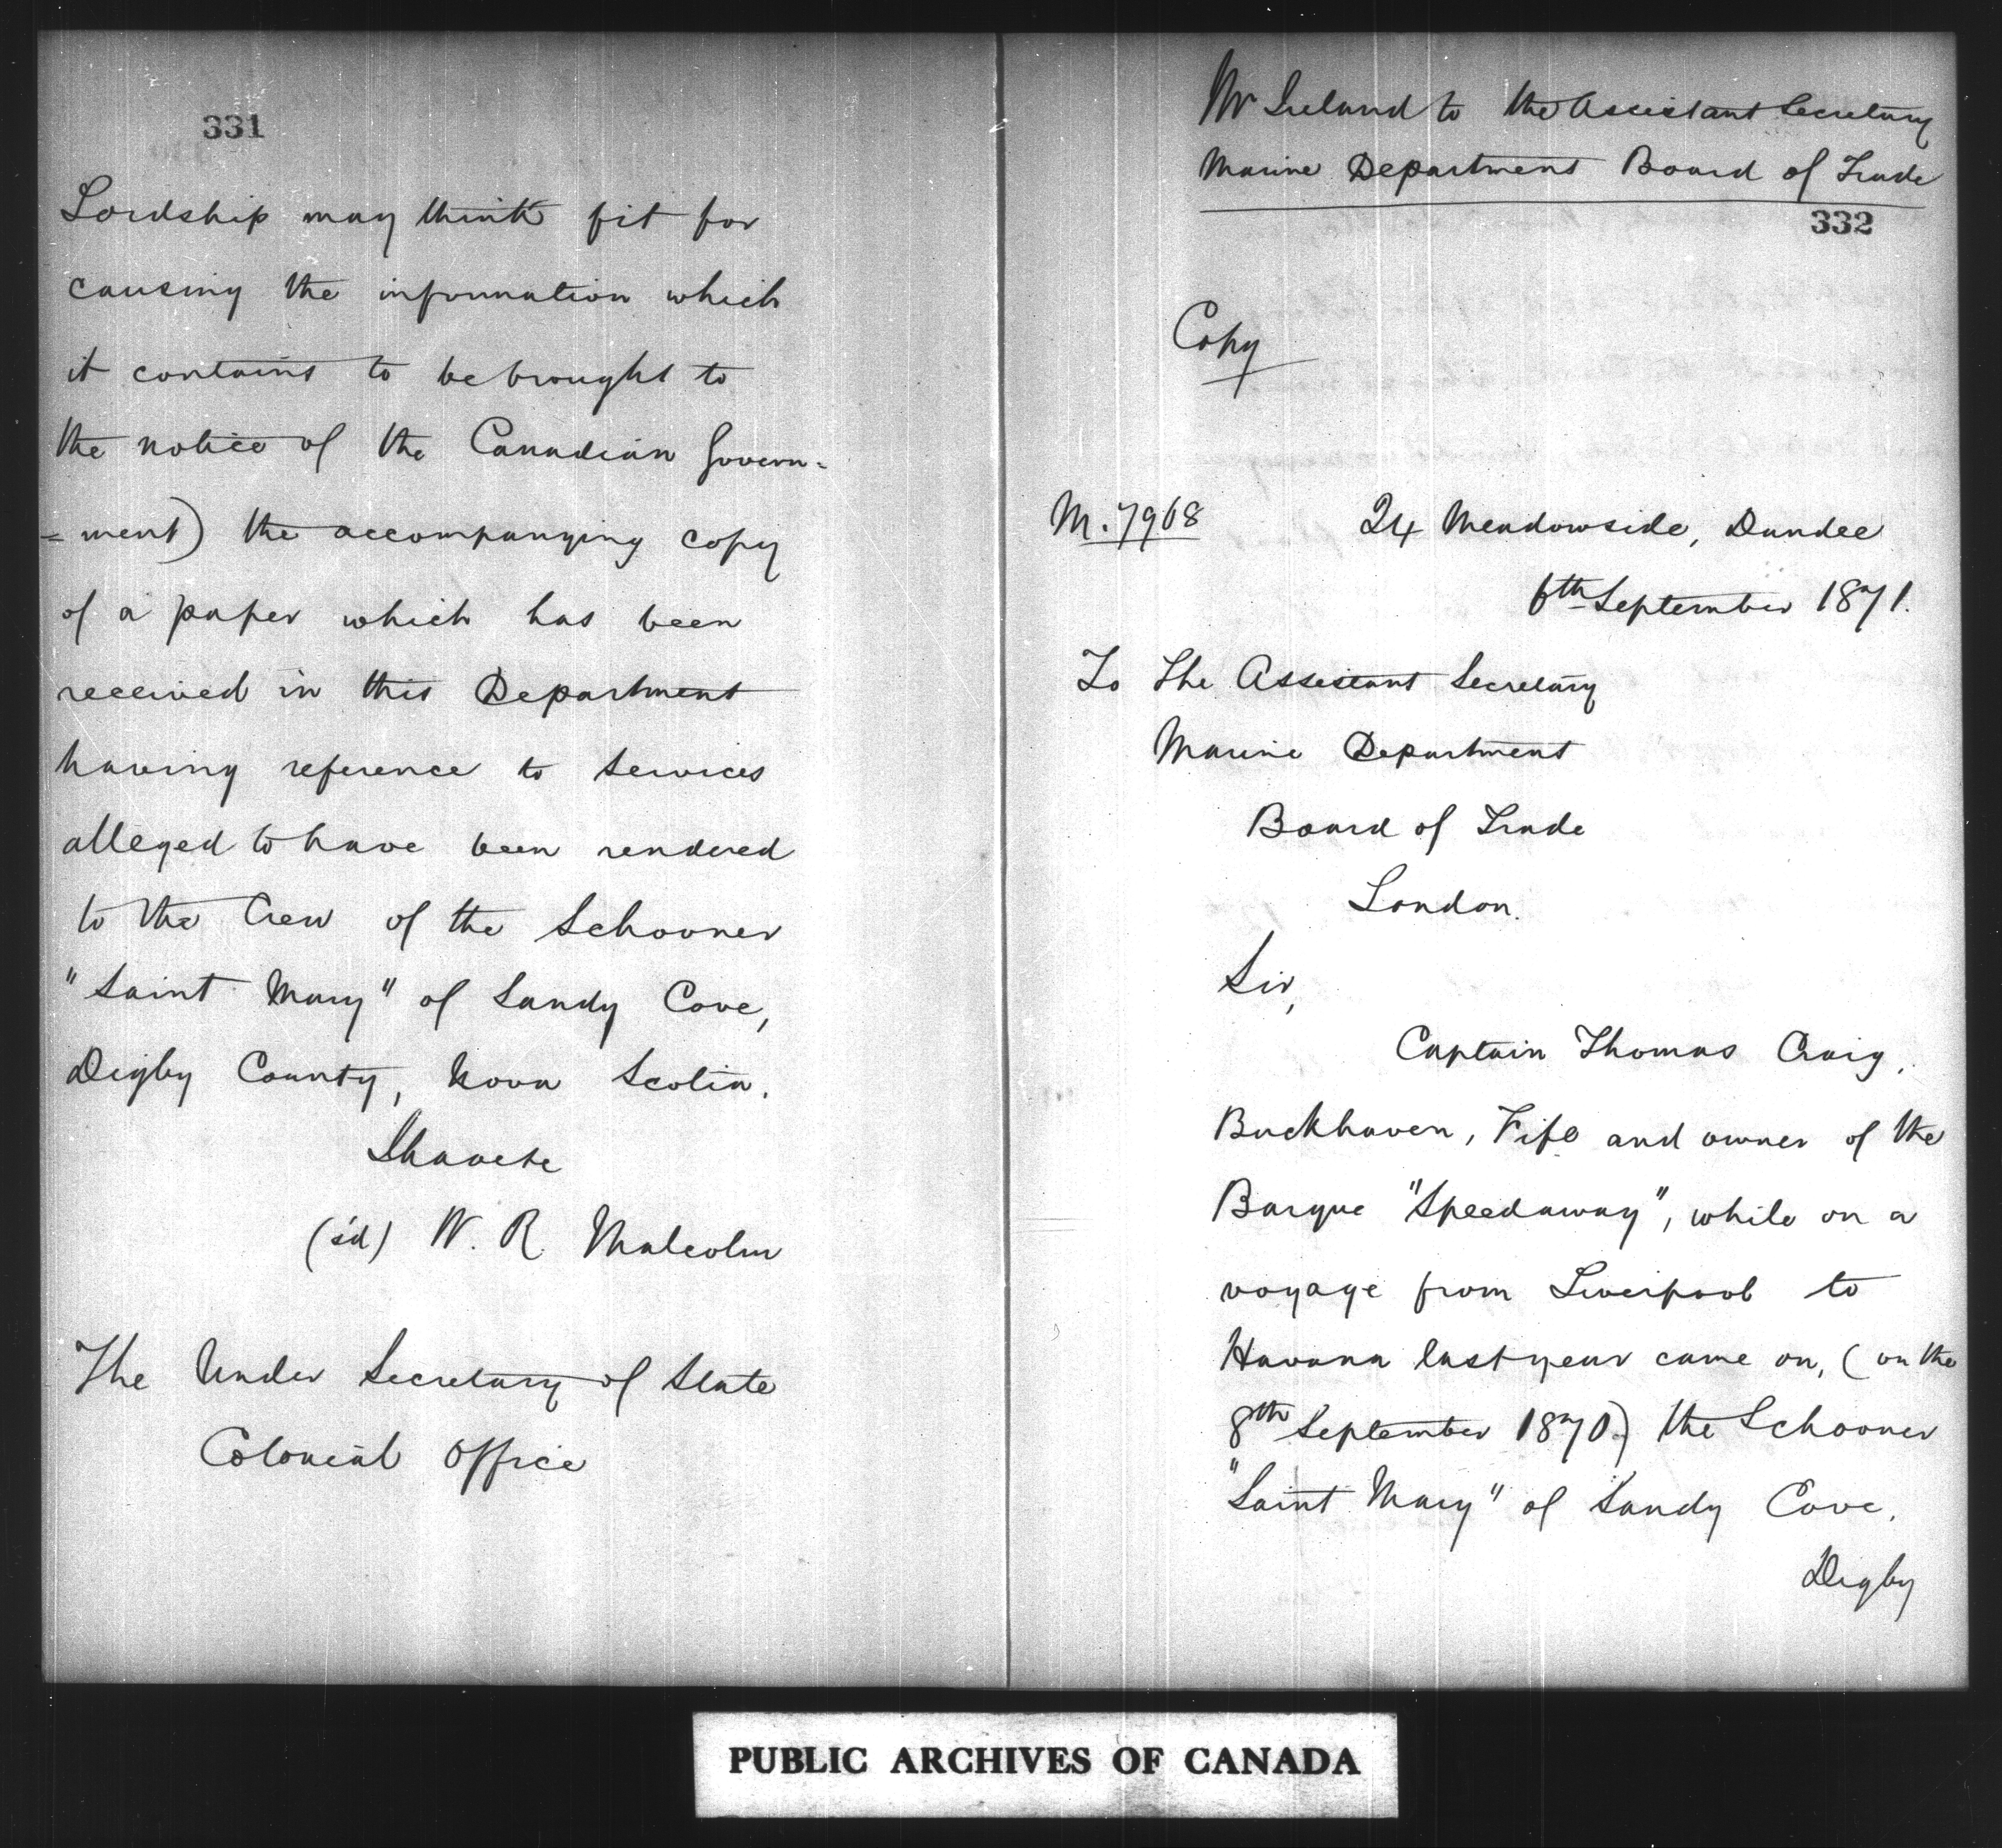 331
Lordship may think fit for
causing the information which
it contains to be brought to
the notice of the Canadian Govern=
=ment) the accompanying copy
of a paper which has been
received in this Department
having reference to services
alleged to have been rendered
to the Crew of the Schooner
"Saint Mary" of Sandy Cove,
Digby County, Nova Scotia.
I have &c
(s'd) W. R. Malcolm
The Under Secretary of State
Colonial Office
Mr Ireland to the Assistant Secretary
Marine Department Board of Trade
332
Copy
M. 7968
24 Meadowside, Dundee
6th September 1871.
To The Assistant Secretary
Marine Department
Board of Trade
London.
Sir,
Captain Thomas Craig,
Buckhaven, Fife and owner of the
Barque "Speedaway", while on a
voyage from Liverpool to
Havana last year came on, (on the
8th September 1870.) the Schooner
"Saint Mary" of Sandy Cove,
Digby
PUBLIC ARCHIVES OF CANADA